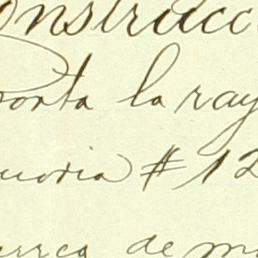 onstrucc
porta la ray
moria # 12
de m